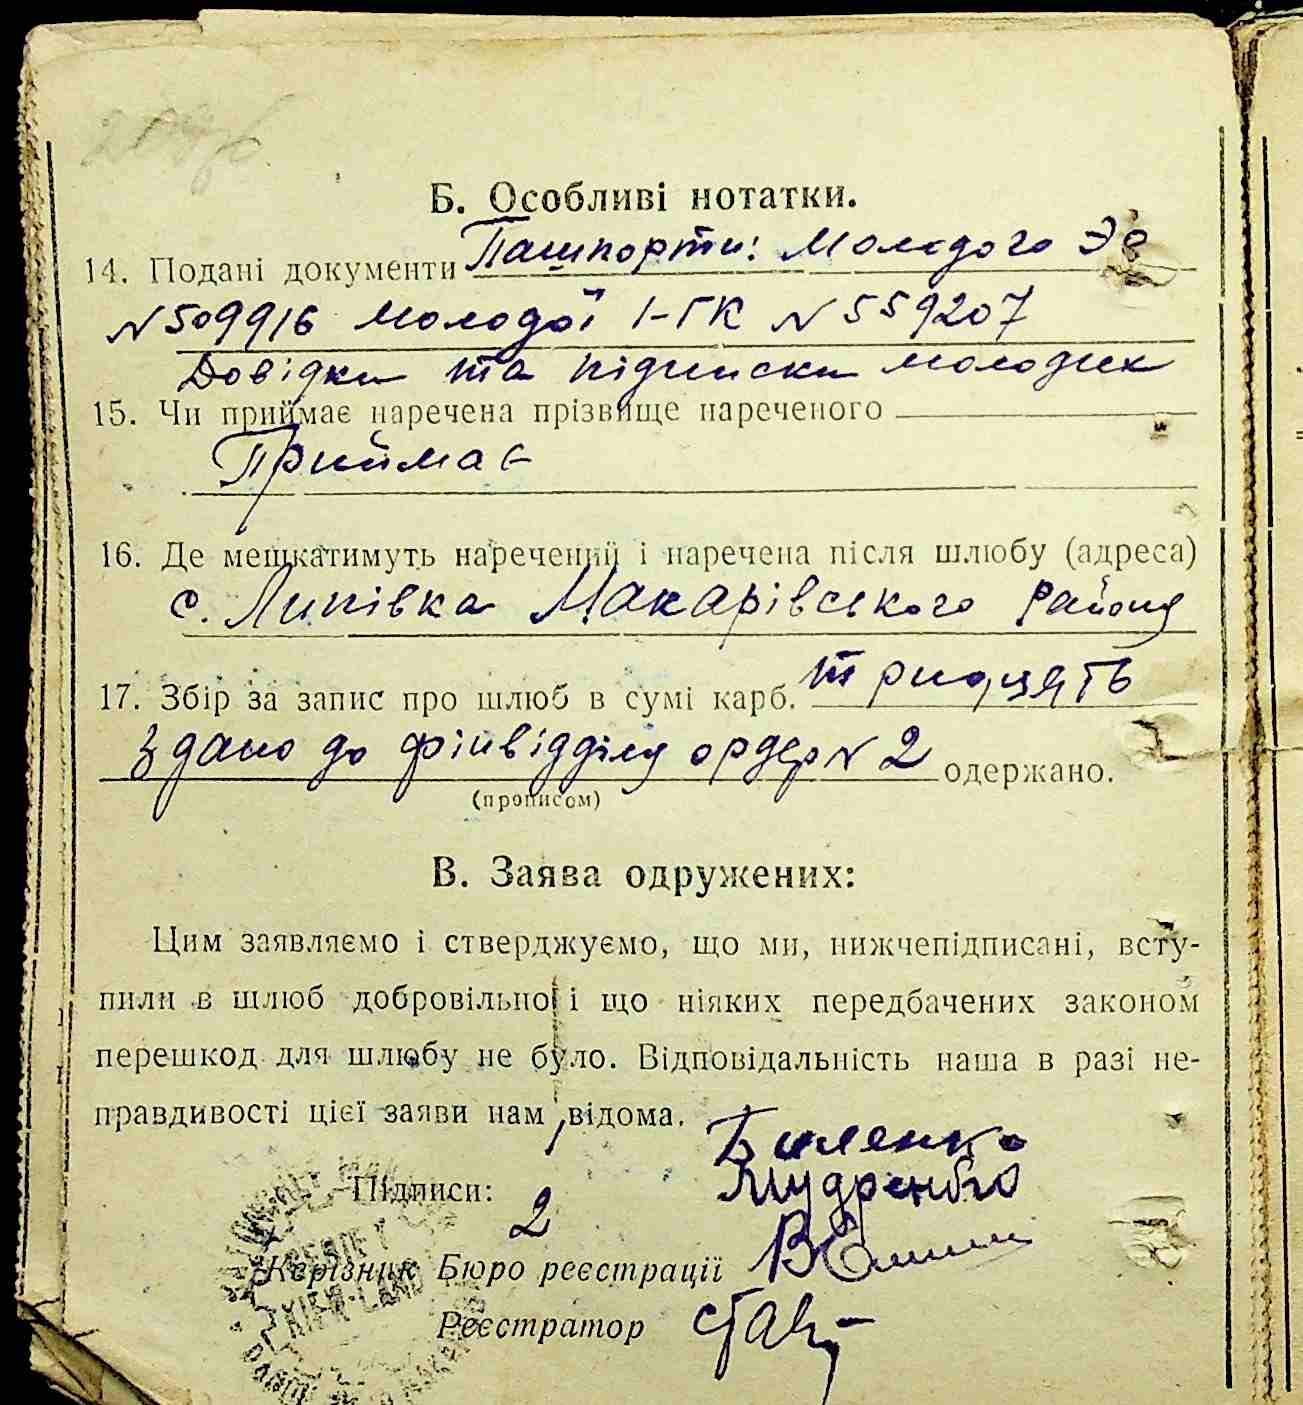 Б. Особливі нотатки.
14. Подані документи Пашпорти: Молодого
№509916 Молодої І-ГК №559207
Довідки та підписки молодих
15. Чи приймає наречена прізвище нареченого
Приймає
16. Де мешкатимуть наречений і наречена після шлюбу (адреса)
с. Липівка Макарівського району
17. Збір за запис про шлюб в сумі карб. тридцять
Здано до фінвідділу ордер №2 одержано.
(прописом)
В. Заява одружених:
Цим заявляємо і стверджуємо, що ми, нижчепідписані, всту-
пили в шлюб добровільно і що ніяких передбачених законом
перешкод для шлюбу не було. Відповідальність наша в разі не-
правдивості цієї заяви нам відома.
Підписи:
2
Керівник Бюро реєстрації
Реєстратор